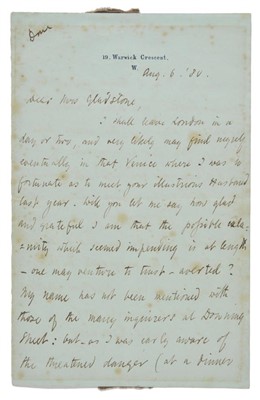 Done
19. Warwick Crescent,
W.
Aug. 6. '80.
Dear Mrs Gladstone,
I shall leave London in a
day or two, and very likely may find myself
eventually in that Venice where I was so
fortunate as to meet your illustrious Husband
last year. Will you let me say how glad
and grateful I am that the possible cala-
-mity which seemed impending is at length
- one may venture to trust - averted?
My name has not been mentioned with
those of the many inquirers at Downing
Street: but, as I was early aware of
the threatened danger (at a dinner